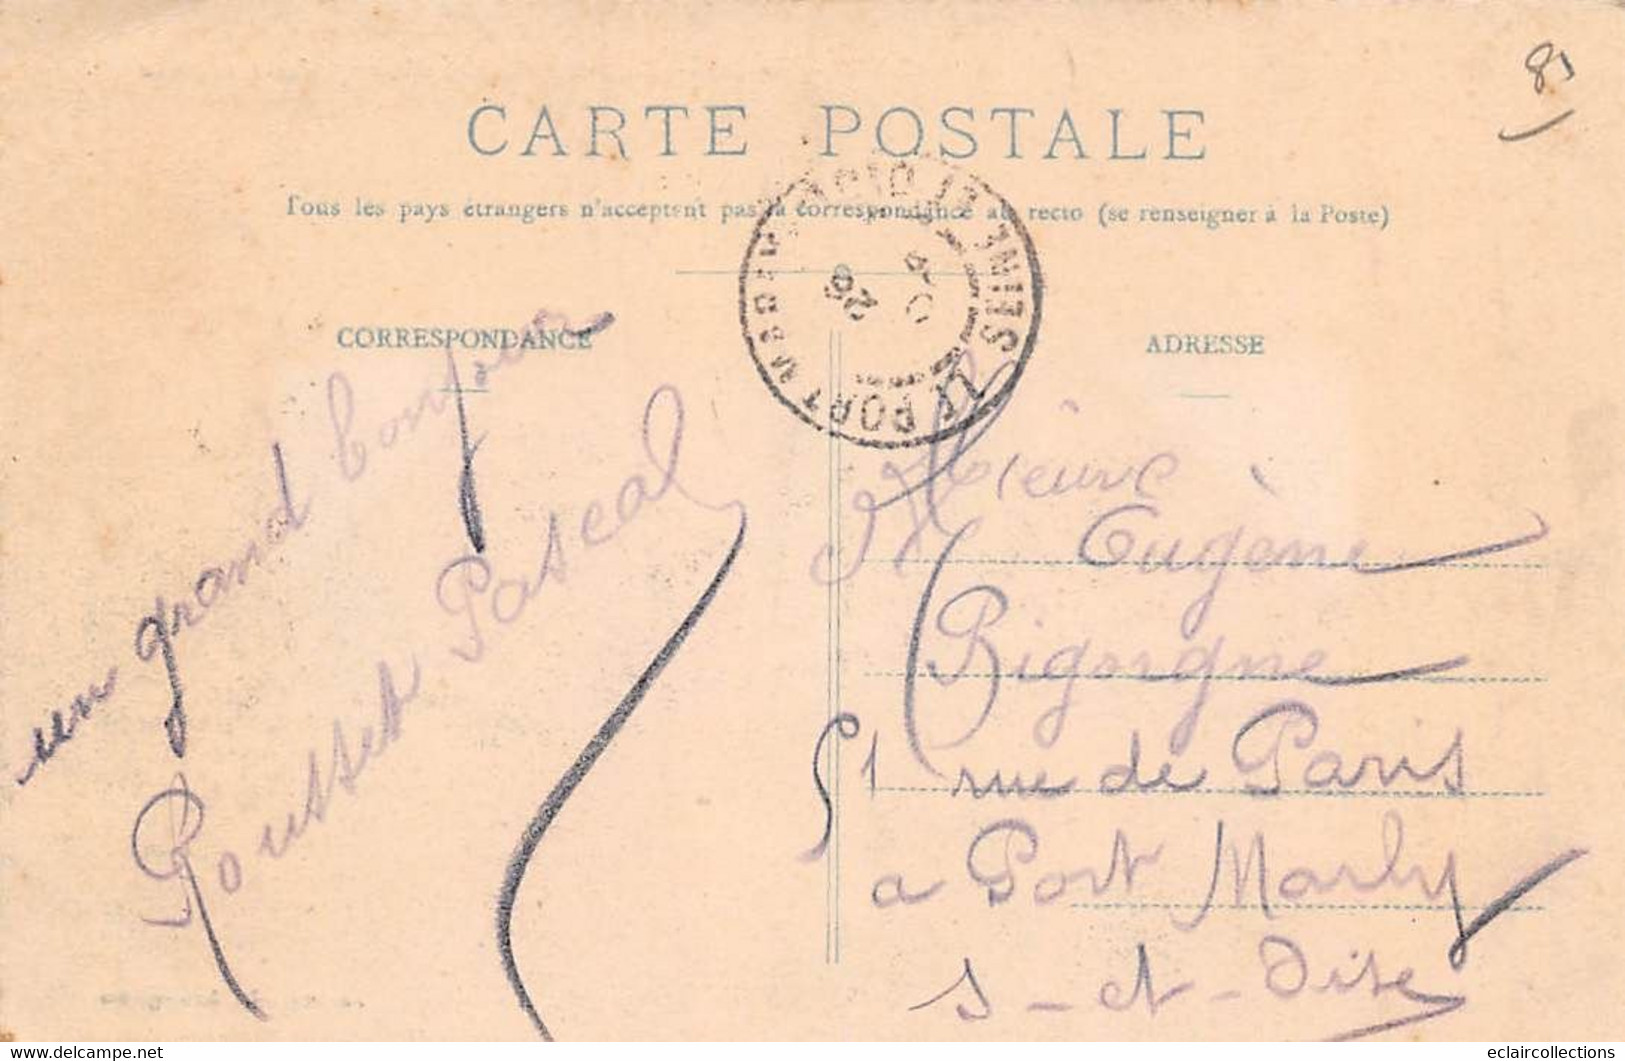 81
CARTE POSTALE
Tous les pays étrangers n'acceptent pas la correspondance au recto (se renseigner à la Poste)
SEINE ET OISE
LE PORT MARLY
26
CORRESPONDANCE
ADRESSE
un grand bonjour
Rousset Pascal
Mieure
Eugène
Rigugne
51 rue de Paris
a Port Marly
S-et-Oise
www.delcampe.net
eclaircollections